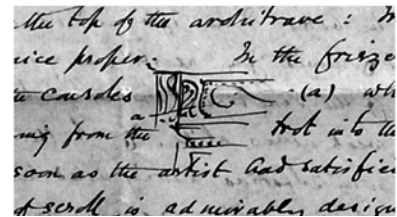 the top of the architrave : In
nice proper. In the frieze
consoles (a) wh
a
ing from the not into the
soon as the artist had satisfied
of scroll is admirably design